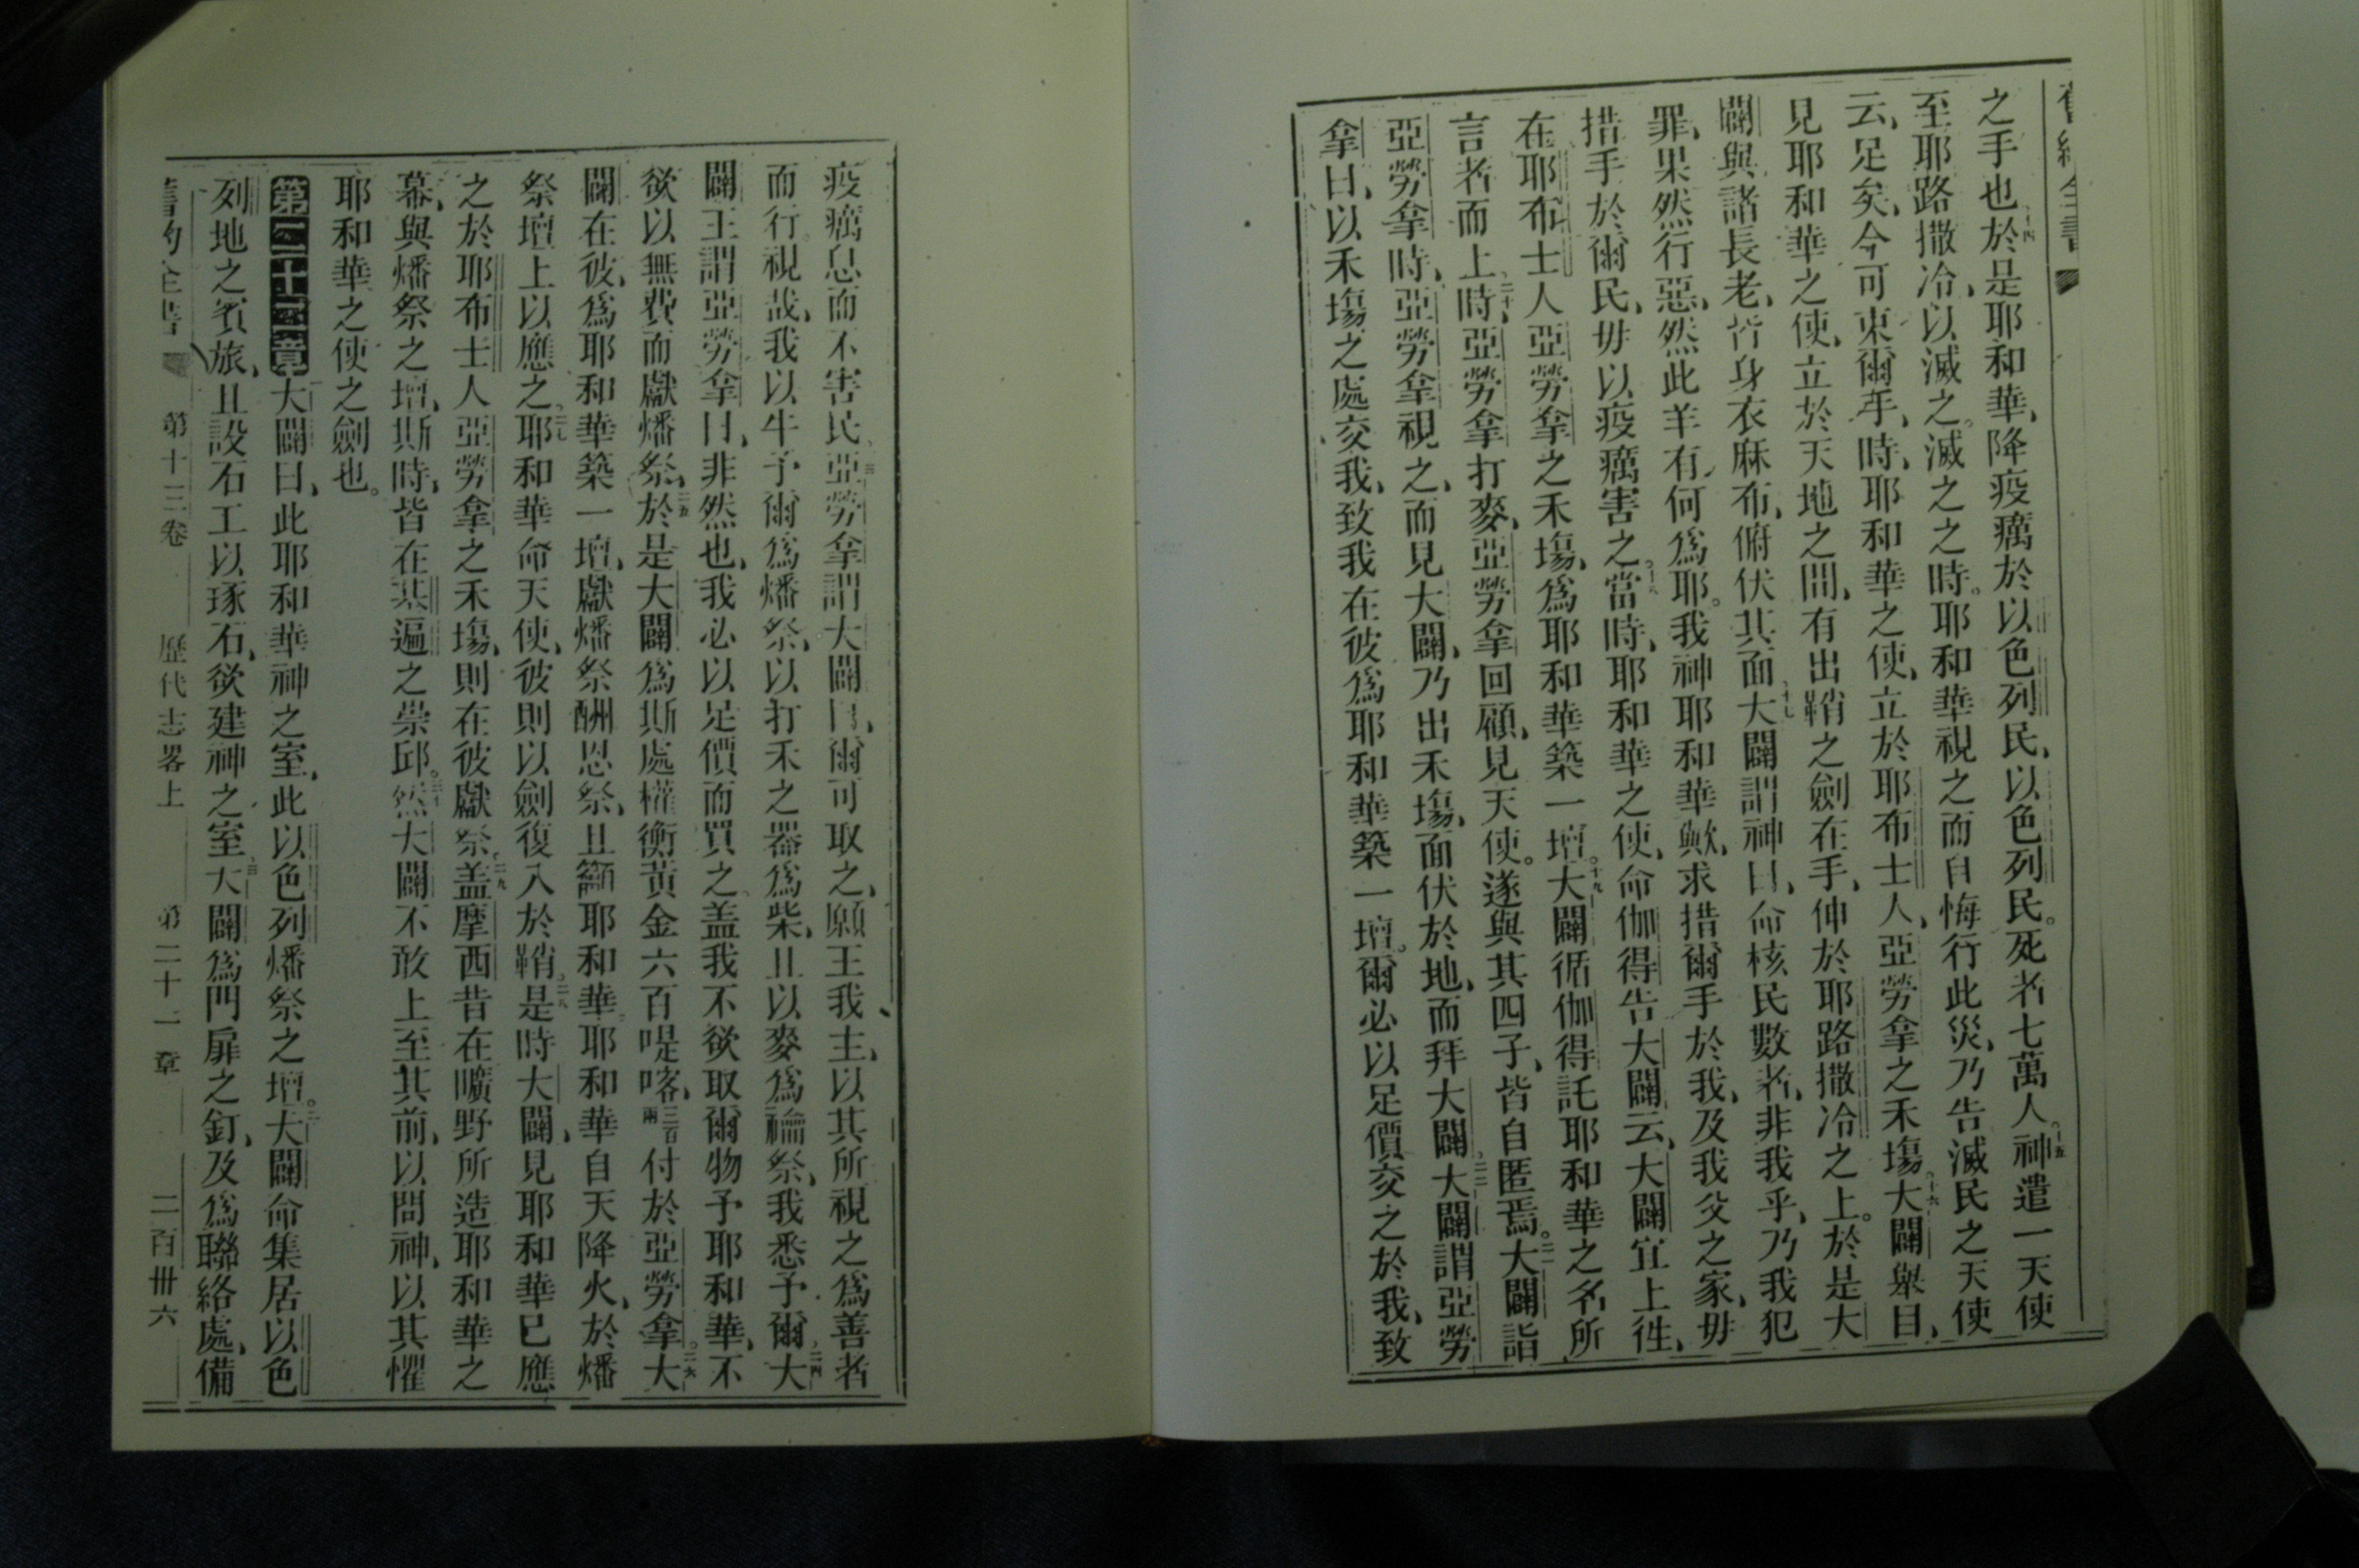 舊約全書
之手也十四於是耶和華、降疫癘於以色列民、以色列民。死者七萬人。十五神遣一天使
至耶路撒冷、以滅之。滅之之時。耶和華視之而自悔行此災、乃告滅民之天使
云、足矣、今可束爾手、時、耶和華之使、立於耶布士人、亞勞拿之禾塲。十六大闢舉目、
見耶和華之使、立於天地之間、有出鞘之劍在手、伸於耶路撒冷之上。於是大
闢與諸長老、皆身衣麻布、俯伏其面、十七大闢謂神曰、命核民數者、非我乎、乃我犯
罪、果然行惡、然此羊有何爲耶。我神耶和華歟、求措爾手於我、及我父之家、毋
措手於爾民、毋以疫癘害之。十八當時、耶和華之使、命伽得告大闢云、大闢宜上徃、
在耶布士人亞勞拿之禾塲、爲耶和華築一壇。十九大闢循伽得託耶和華之名所
言者而上、二十時、亞勞拿打麥、亞勞拿回顧、見天使。遂與其四子、皆自匿焉。二一大闢詣
亞勞拿時、亞勞拿視之、而見大闢、乃出禾塲、面伏於地、而拜大闢、二二大闢謂亞勞
拿曰、以禾塲之處交我、致我在彼爲耶和華築一壇。爾必以足價交之於我、致
疫癘息而不害民、二三亞勞拿謂大闢曰、爾可取之、願王我主、以其所視之爲善者
而行。視哉、我以牛予爾爲燔祭、以打禾之器爲柴、且以麥爲禴祭、我悉予爾、二四大
闢王謂亞勞拿曰、非然也、我必以足價而買之、盖我不欲取爾物予耶和華、不
欲以無費而獻燔祭、二五於是大闢爲斯處權衡黃金六百㖷喀、三百兩付於亞勞拿。二六大
闢在彼、爲耶和華築一壇、獻燔祭酬恩祭、且籲耶和華、耶和華自天降火、於燔
祭壇上以應之。二七耶和華命天使、彼則以劍復入於鞘。二八是時大闢、見耶和華已應
之於耶布士人亞勞拿之禾塲、則在彼獻祭。二九盖摩西昔在曠野所造耶和華之
幕、與燔祭之壇、斯時、皆在基遍之崇邱。三十然大闢不敢上至其前、以問神、以其懼
耶和華之使之劍也。
第二十二章大闢曰、此耶和華神之室、此以色列燔祭之壇。二大闢命集居以色
列地之賓旅、且設石工以琢石、欲建神之室、三大闢爲門扉之釘、及爲聯絡處、備
舊約全書 第十三卷 歷代志畧上 第二十一章 二百卅六